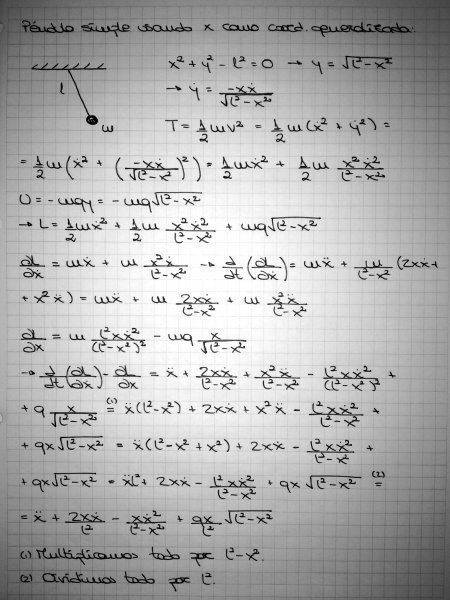 Péndulo simple usando x como coord. generalizada:
x² + y² - l² = 0 → y = √(l² - x²)
l
→ ẏ = -xẋ / √(l² - x²)
m
T = 1/2 m v² = 1/2 m (ẋ² + ẏ²) =
= 1/2 m (ẋ² + (-xẋ / √(l² - x²))²) = 1/2 m ẋ² + 1/2 m x²ẋ² / (l² - x²)
U = -mgy = -mg√(l² - x²)
→ L = 1/2 m ẋ² + 1/2 m x²ẋ² / (l² - x²) + mg√(l² - x²)
∂L/∂ẋ = mẋ + m x²ẋ / (l² - x²) → d/dt (∂L/∂ẋ) = mẍ + m / (l² - x²) (2xẋ +
+ x²ẍ) = mẍ + m 2xẋ / (l² - x²) + m x²ẍ / (l² - x²)
∂L/∂x = m l²xẋ² / (l² - x²)² - mg x / √(l² - x²)
→ d/dt (∂L/∂ẋ) - ∂L/∂x = ẍ + 2xẋ / (l² - x²) + x²ẍ / (l² - x²) - l²xẋ² / (l² - x²)² +
+ g x / √(l² - x²) =⁽¹⁾ ẍ(l² - x²) + 2xẋ + x²ẍ - l²xẋ² / (l² - x²) +
+ gx√(l² - x²) = ẍ(l² - x² + x²) + 2xẋ - l²xẋ² / (l² - x²) +
+ gx√(l² - x²) = ẍl² + 2xẋ - l²xẋ² / (l² - x²) + gx√(l² - x²) =⁽²⁾
= ẍ + 2xẋ / l² - xẋ² / (l² - x²) + gx / l² √(l² - x²)
(1) Multiplicamos todo por l² - x².
(2) Dividimos todo por l².